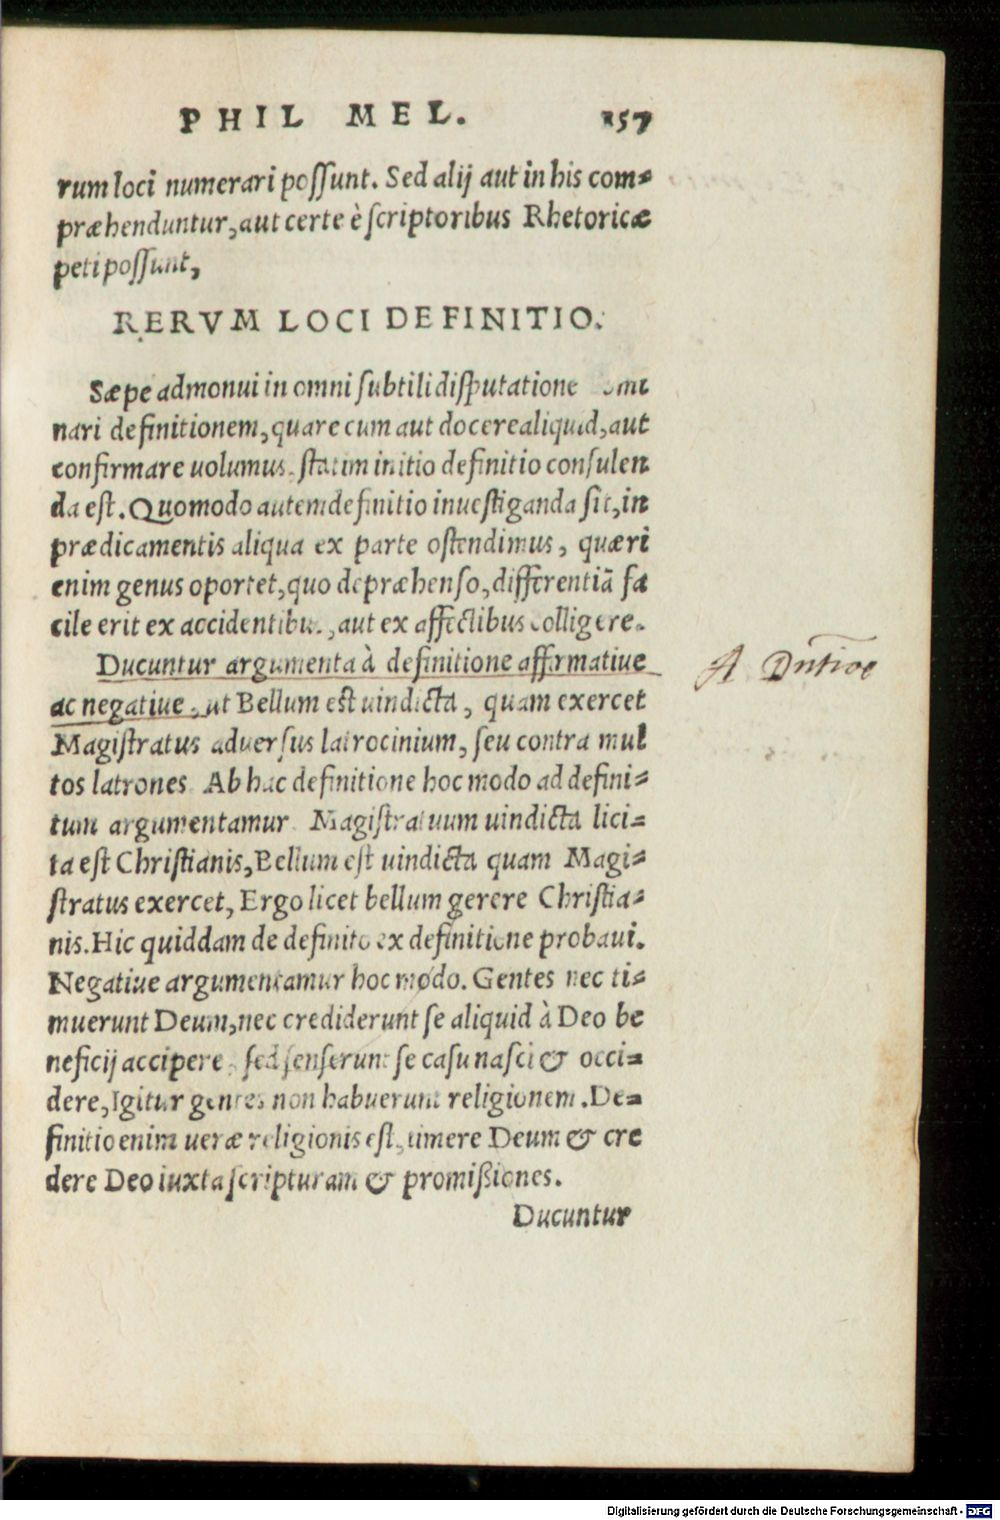 PHIL MEL. 157
rum loci numerari possunt. Sed alij aut in his com-
præhenduntur, aut certe è scriptoribus Rhetoricæ
peti possunt,
RERVM LOCI DEFINITIO.
Sæpe admonui in omni subtili disputatione
nari definitionem, quare cum aut docere aliquid, aut
confirmare uolumus. statim initio definitio consulen
da est. Quomodo autem definitio inuestiganda sit, in
prædicamentis aliqua ex parte ostendimus, quæri
enim genus oportet, quo depræhenso, differentiã fa
cile erit ex accidentibu., aut ex affectibus colligere.
Ducuntur argumenta à definitione affirmatiue
ac negatiue, ut Bellum est uindicta, quam exercet
Magistratus aduersus latrocinium, seu contra mul
tos latrones Ab hac definitione hoc modo ad defini-
tum argumentamur Magistratuum uindicta lici-
ta est Christianis, Bellum est uindicta quam Magi-
stratus exercet, Ergo licet bellum gerere Christia-
nis. Hic quiddam de definito ex definitione probaui.
Negatiue argumentamur hoc modo. Gentes nec ti-
muerunt Deum, nec crediderunt se aliquid à Deo be
neficij accipere, sed senserunt se casu nasci & occi-
dere, Igitur gentes non habuerunt religionem. De-
finitio enim ueræ religionis est, timere Deum & cre
dere Deo iuxta scripturam & promißiones.
Ducuntur
A
Digitalisierung gefördert durch die Deutsche Forschungsgemeinschaft - DFG